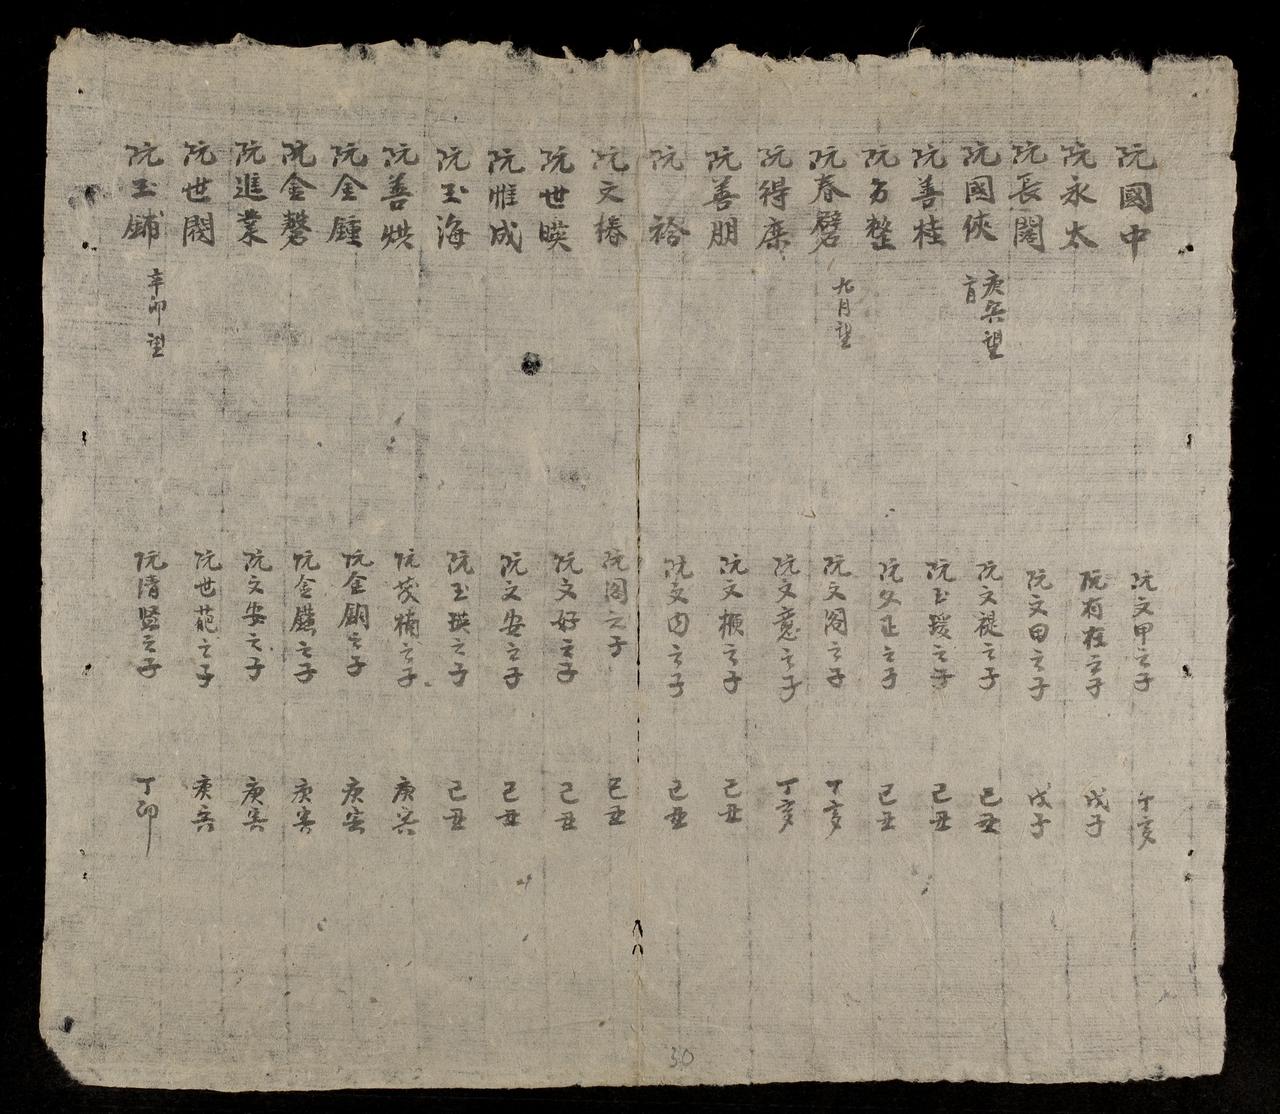 阮國中 阮文甲之子 丁亥
阮永太 阮有在之子 戊子
阮長閣 阮文田之子 戊子
阮國俠 庚寅望 盲 阮文禔之子 己丑
阮善桂 阮玉璦之子 己丑
阮方整 阮久正之子 己丑
阮春 九月望 阮文閣之子 丁亥
阮得 阮文意之子 丁亥
阮善朋 阮文㮒之子 己丑
阮 袷 阮文内之子 己丑
阮文椿 阮閣之子 己丑
阮世暎 阮文好之子 己丑
阮惟成 阮文安之子 己丑
阮玉海 阮玉瑛之子 己丑
阮善烘 阮茂楠之子 庚寅
阮金鍾 阮金鋼之子 庚寅
阮金磬 阮金鐄之子 庚寅
阮進業 阮文安之子 庚寅
阮世閥 阮世葩之子 庚寅
阮玉鋪 辛卯望 阮清賢之子 丁卯
30